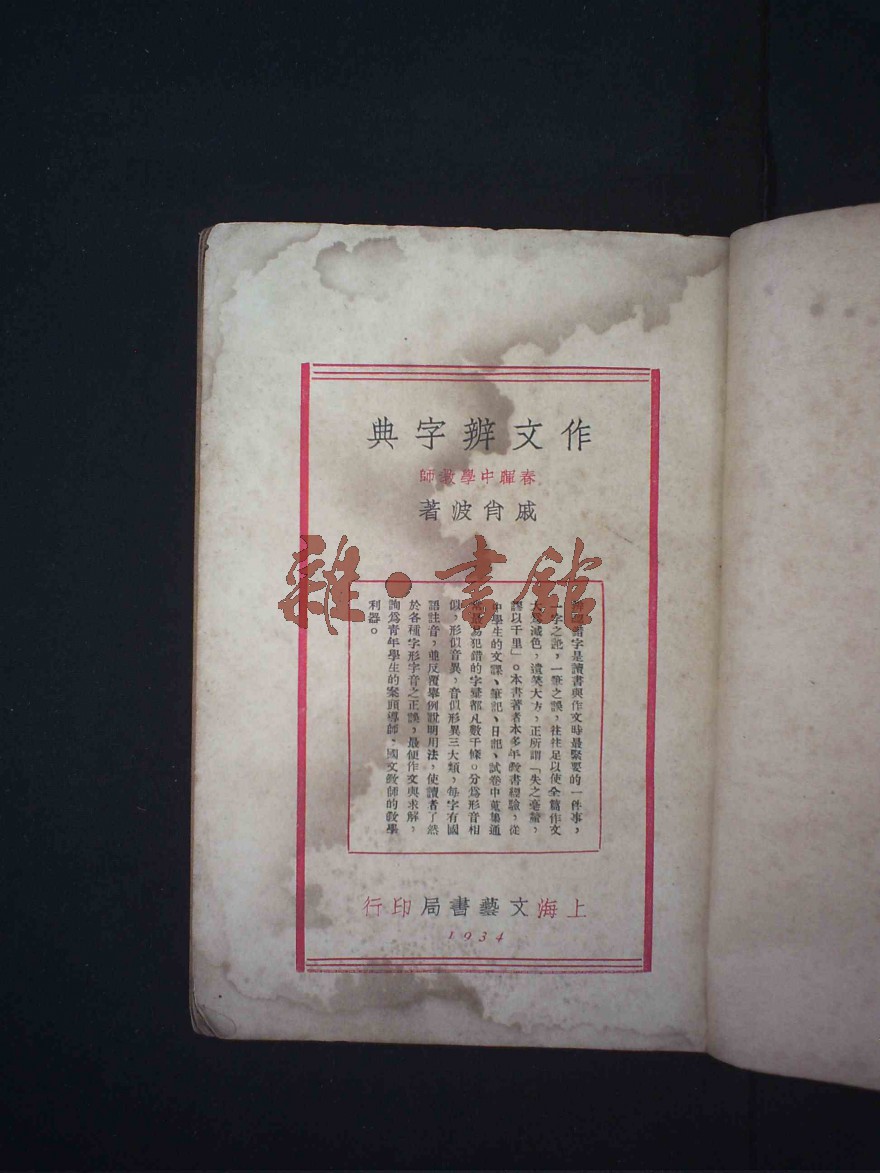 作文辨字典
春暉中學教師
戚肖波著
辨別錯字是讀書與作文時最緊要的一件事，
一字之訛，一筆之誤，往往足以使全篇作文
大為減色，遺笑大方，正所謂「失之毫釐，
謬以千里」。本書著者本多年敎書經驗，從
中學生的文課、筆記、日記、試卷中蒐集通
常最易犯錯的字彙都凡數千條。分為形音相
似，形似音異，音似形異三大類，每字有國
語註音，並反覆舉例說明用法，使讀者了然
於各種字形字音之正誤，最便作文與求解，
詢為青年學生的案頭導師、國文敎師的敎學
利器。
上海文藝書局印行
1934
雜·書館